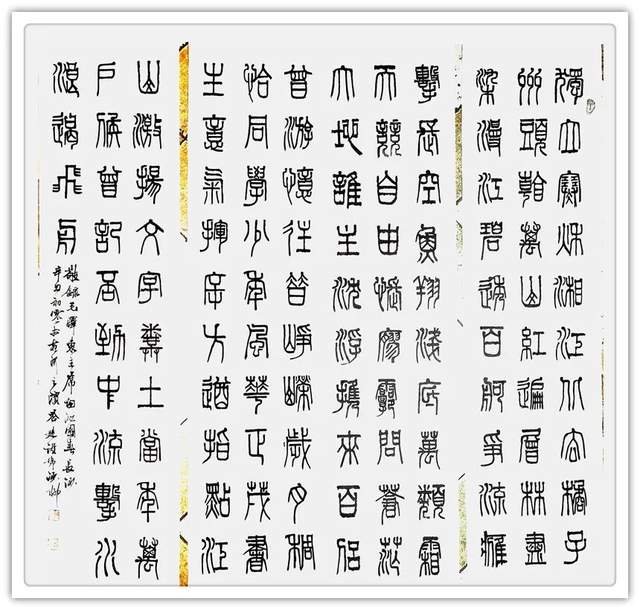 獨立寒秋湘江北去橘子
州頭看萬山紅遍層林盡
染漫江碧透百舸爭流鷹
擊長空魚翔淺底萬類霜
天競自由悵寥廓問蒼茫
大地誰主沈浮攜來百侶
曾游憶往昔崢嶸歲月稠
恰同學少年風華正茂書
生意氣揮斥方遒指點江
山激揚文字糞土當年萬
戶侯曾記否到中流擊水
浪遏飛舟
敬錄毛澤東主席詞沁園春長沙
辛丑初寒